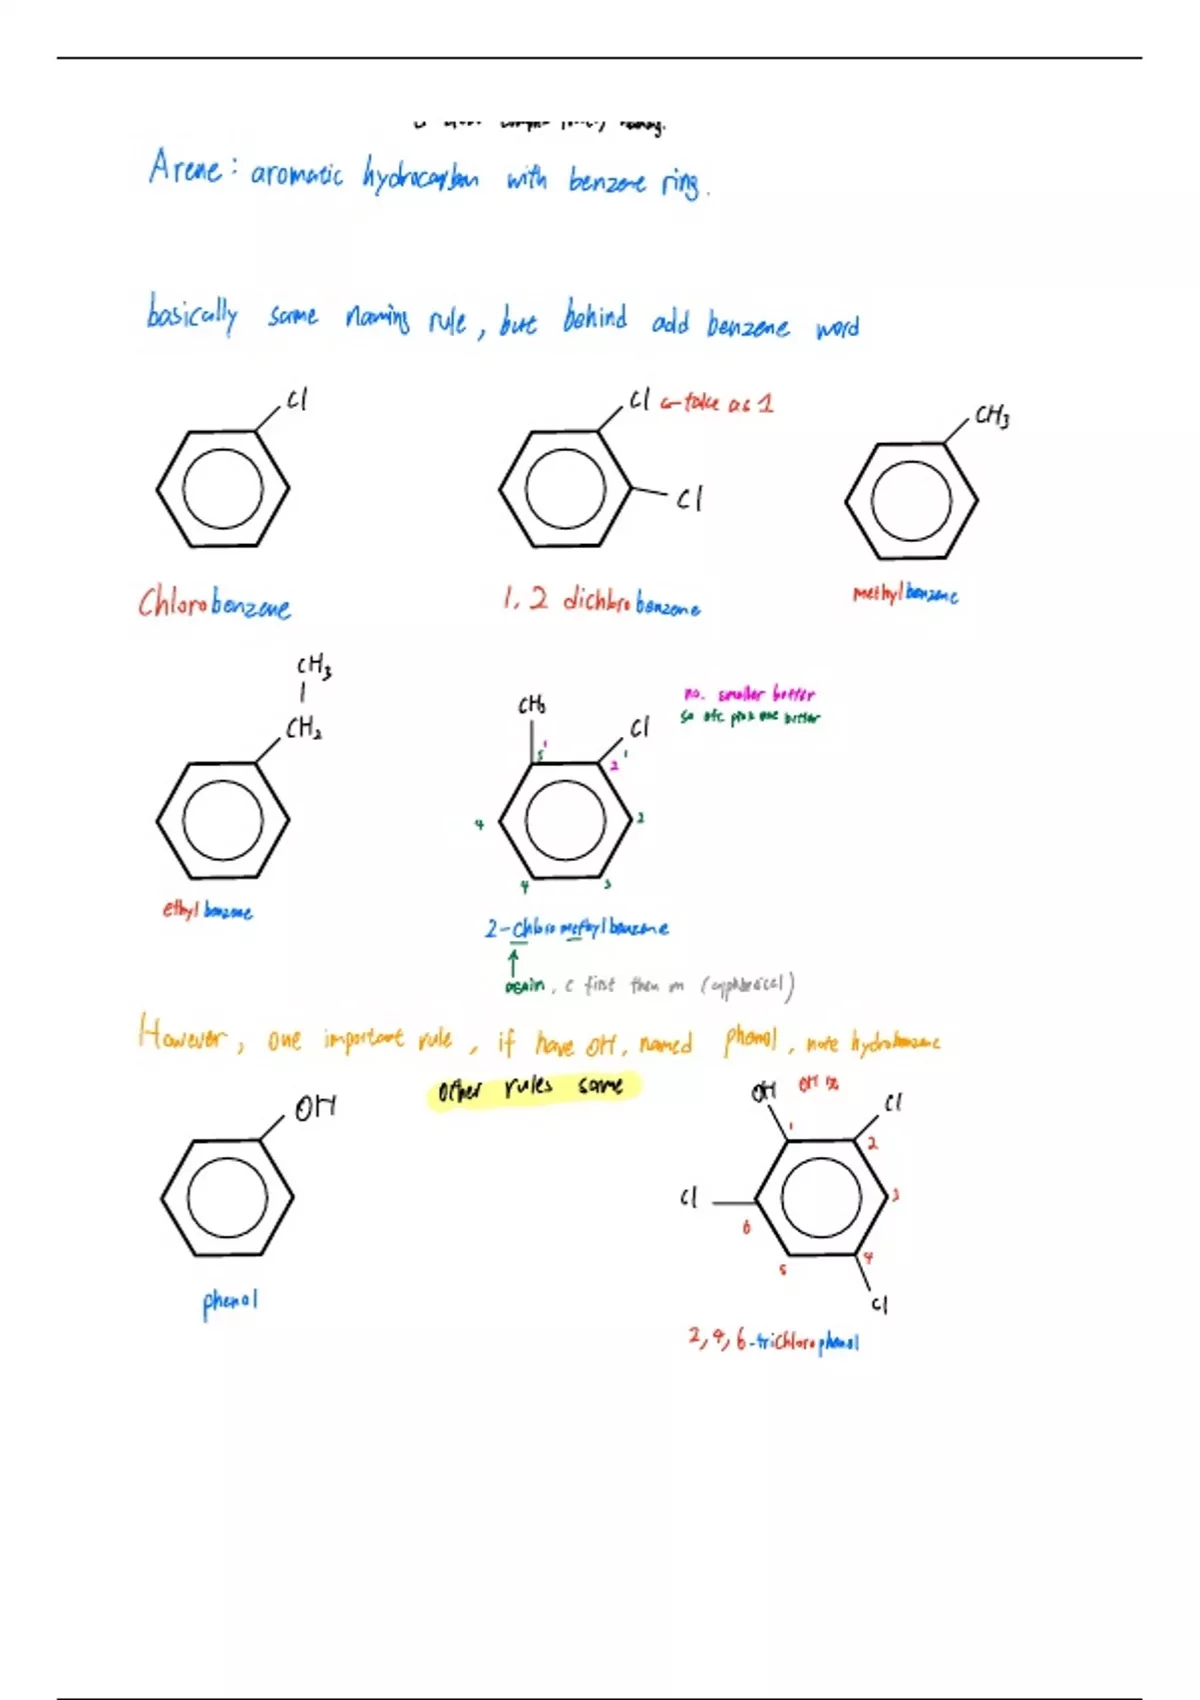 Arene: aromatic hydrocarbon with benzene ring.
basically same naming rule, but behind add benzene word
Cl
Cl ← take as 1
Cl
CH3
Chlorobenzene
1, 2 dichlorobenzene
methylbenzene
CH3
CH2
CH3
Cl
no. smaller better
so pink one better
1
5
1
2
4
2
4
3
ethylbenzene
2-chloromethylbenzene
again, c first then m (alphberical)
However, one important rule, if have OH, named phenol, note hydrobenzene
other rules same
OH
OH
OH is
Cl
1
2
Cl
6
3
5
4
Cl
phenol
2, 4, 6-trichlorophenol